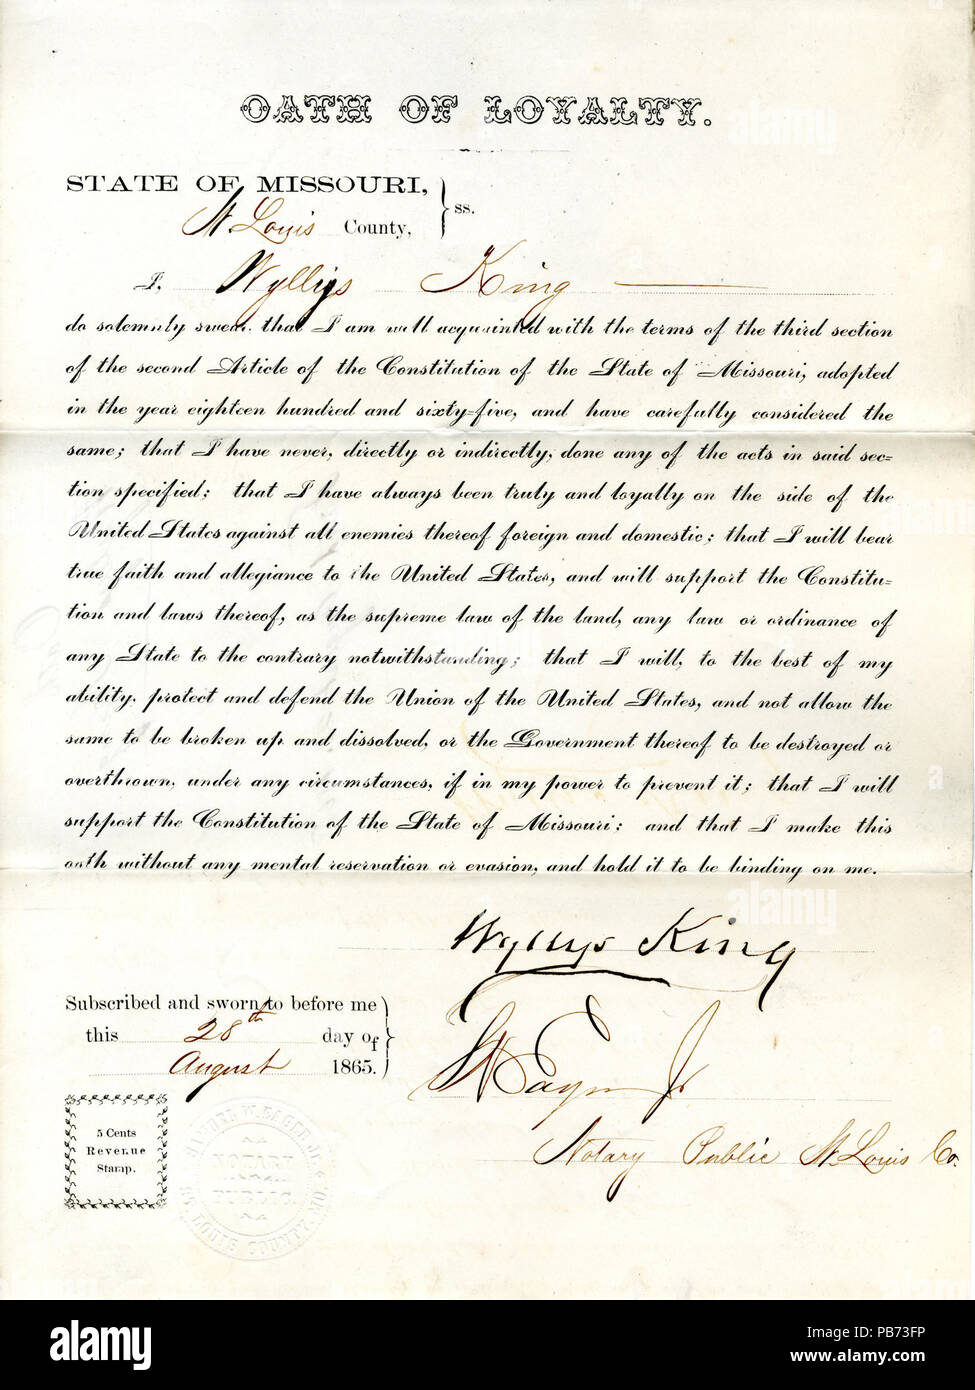 OATH OF LOYALTY.
STATE OF MISSOURI,
St. Louis County, ss.
I, Wyllys King
do solemnly swear, that I am well acquainted with the terms of the third section
of the second Article of the Constitution of the State of Missouri, adopted
in the year eighteen hundred and sixty-five, and have carefully considered the
same; that I have never, directly or indirectly, done any of the acts in said sec-
tion specified; that I have always been truly and loyally on the side of the
United States against all enemies thereof foreign and domestic; that I will bear
true faith and allegiance to the United States, and will support the Constitu-
tion and laws thereof, as the supreme law of the land, any law or ordinance of
any State to the contrary notwithstanding; that I will, to the best of my
ability, protect and defend the Union of the United States, and not allow the
same to be broken up and dissolved, or the Government thereof to be destroyed or
overthrown, under any circumstances, if in my power to prevent it; that I will
support the Constitution of the State of Missouri; and that I make this
oath without any mental reservation or evasion, and hold it to be binding on me.
Wyllys King
Subscribed and sworn to before me
this 28th day of
August 1865.
Notary Public St. Louis Co.
5 Cents
Revenue
Stamp.
SAMUEL W. EAGER JR.
NOTARY
PUBLIC.
ST. LOUIS COUNTY, MO.
alamy
Image ID: PB73FP
www.alamy.com